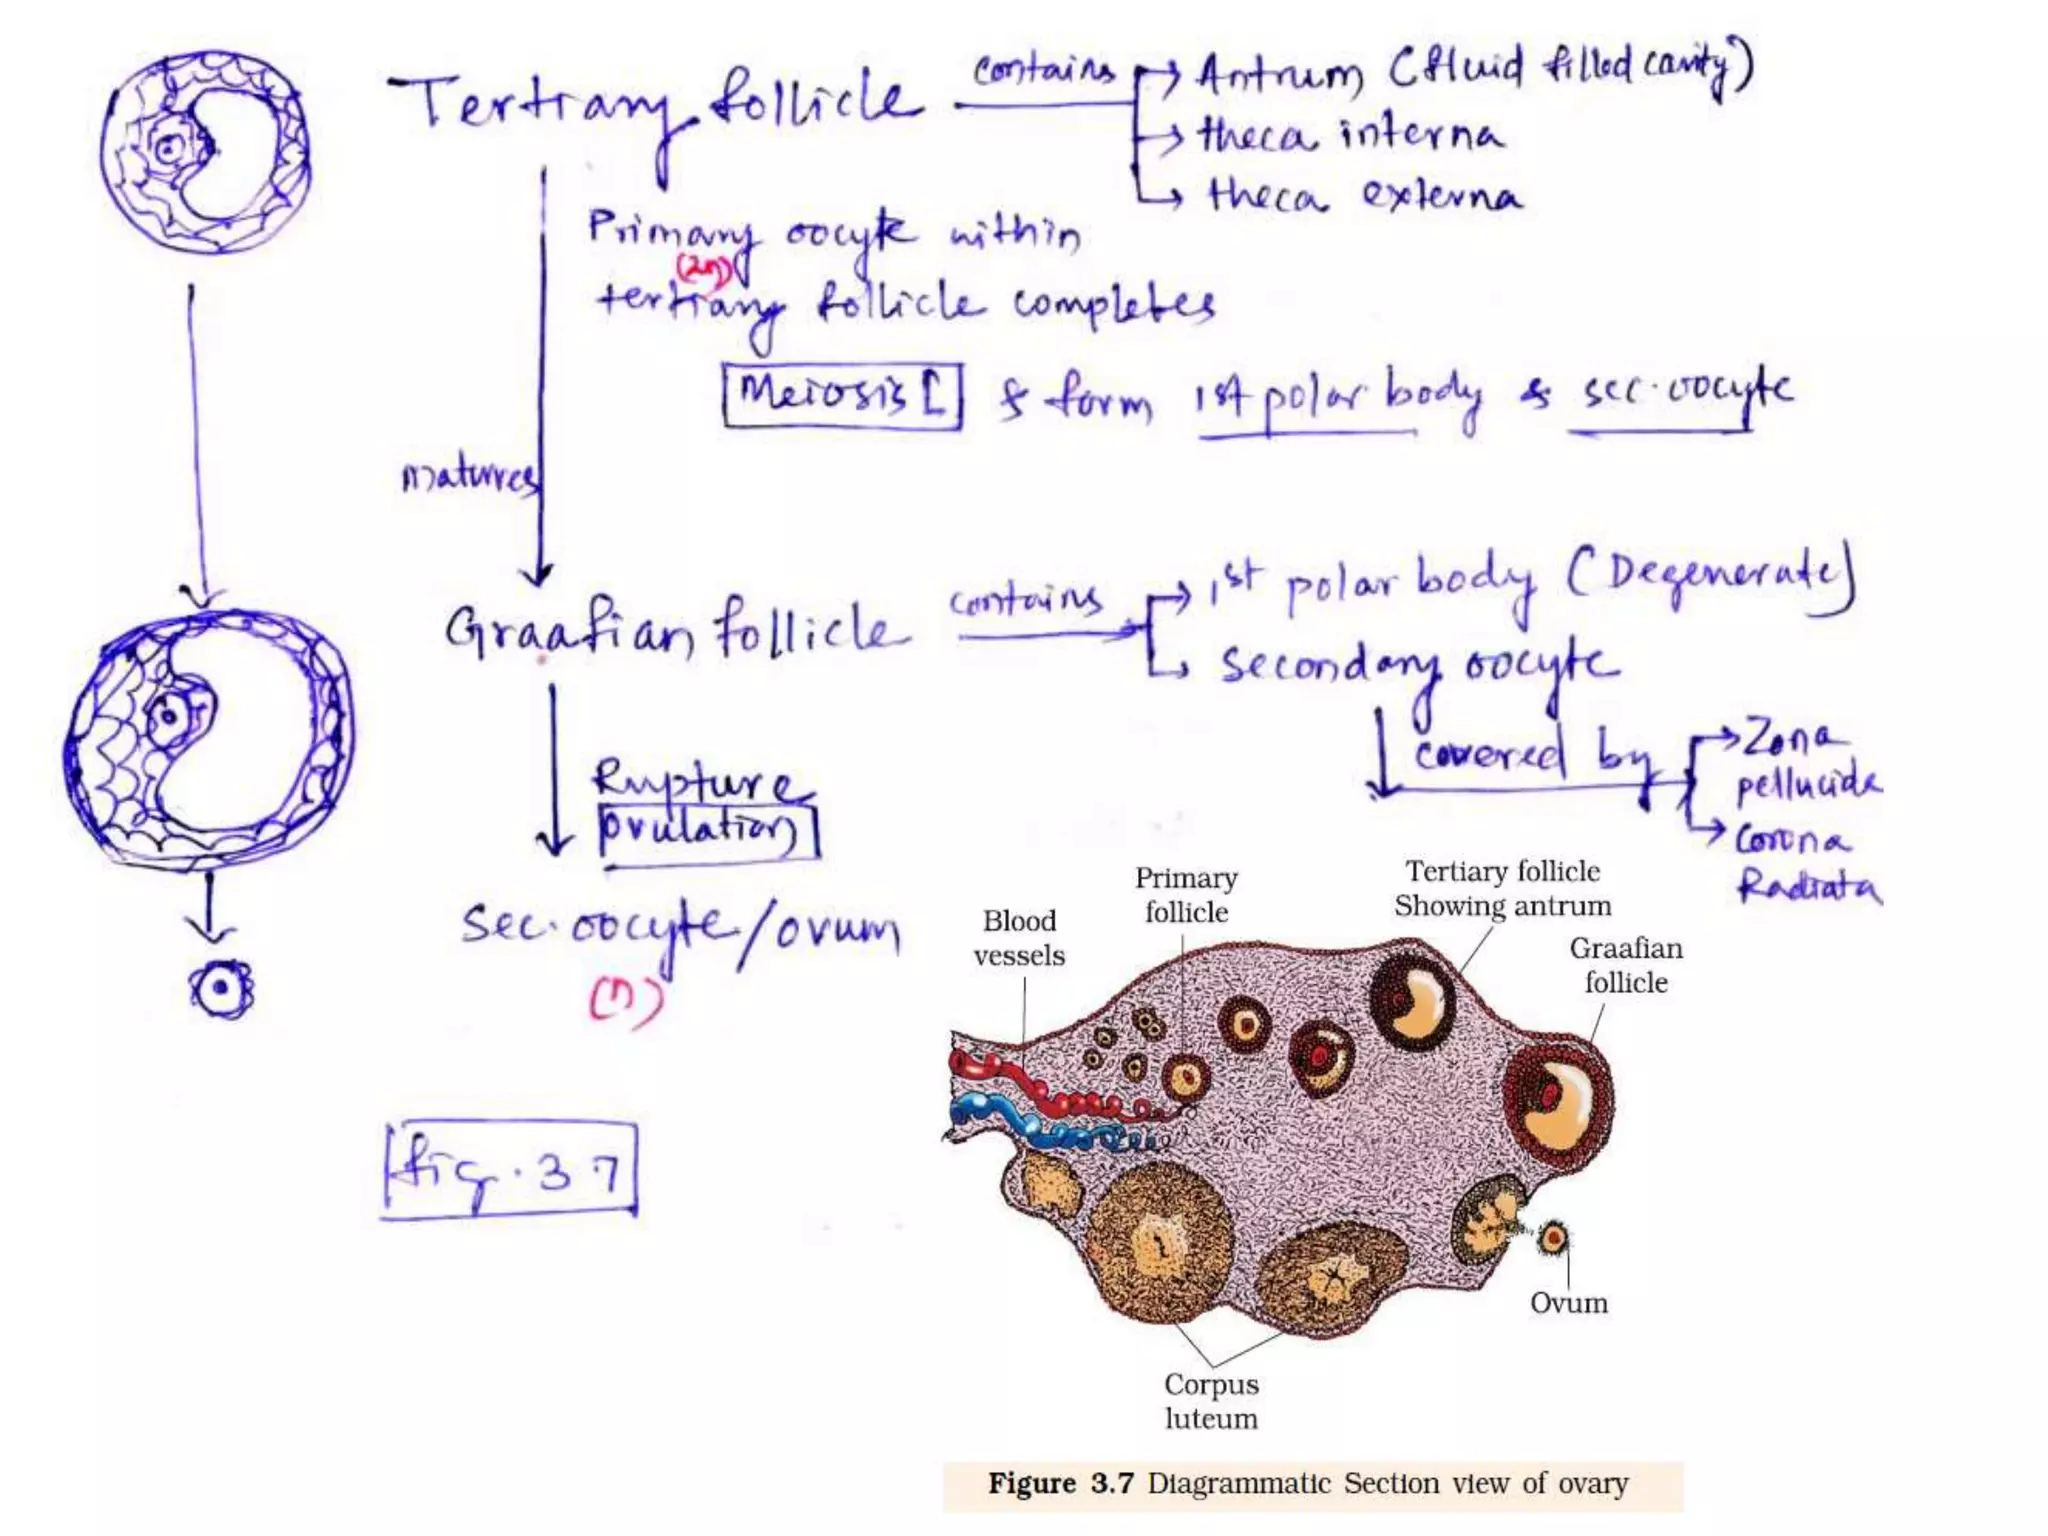 Tertiary follicle contains → Antrum (fluid filled cavity)
→ theca interna
→ theca externa
Primary oocyte within
(2n)
tertiary follicle completes
Meiosis I & form 1st polar body & sec. oocyte
matures
Graafian follicle contains → 1st polar body (Degenerate)
→ secondary oocyte
covered by → Zona
pellucida
→ Corona
Radiata
Rupture
ovulation
Sec. oocyte/ovum
(n)
fig. 3.7
Primary
follicle
Tertiary follicle
Showing antrum
Blood
vessels
Graafian
follicle
Ovum
Corpus
luteum
Figure 3.7 Diagrammatic Section view of ovary